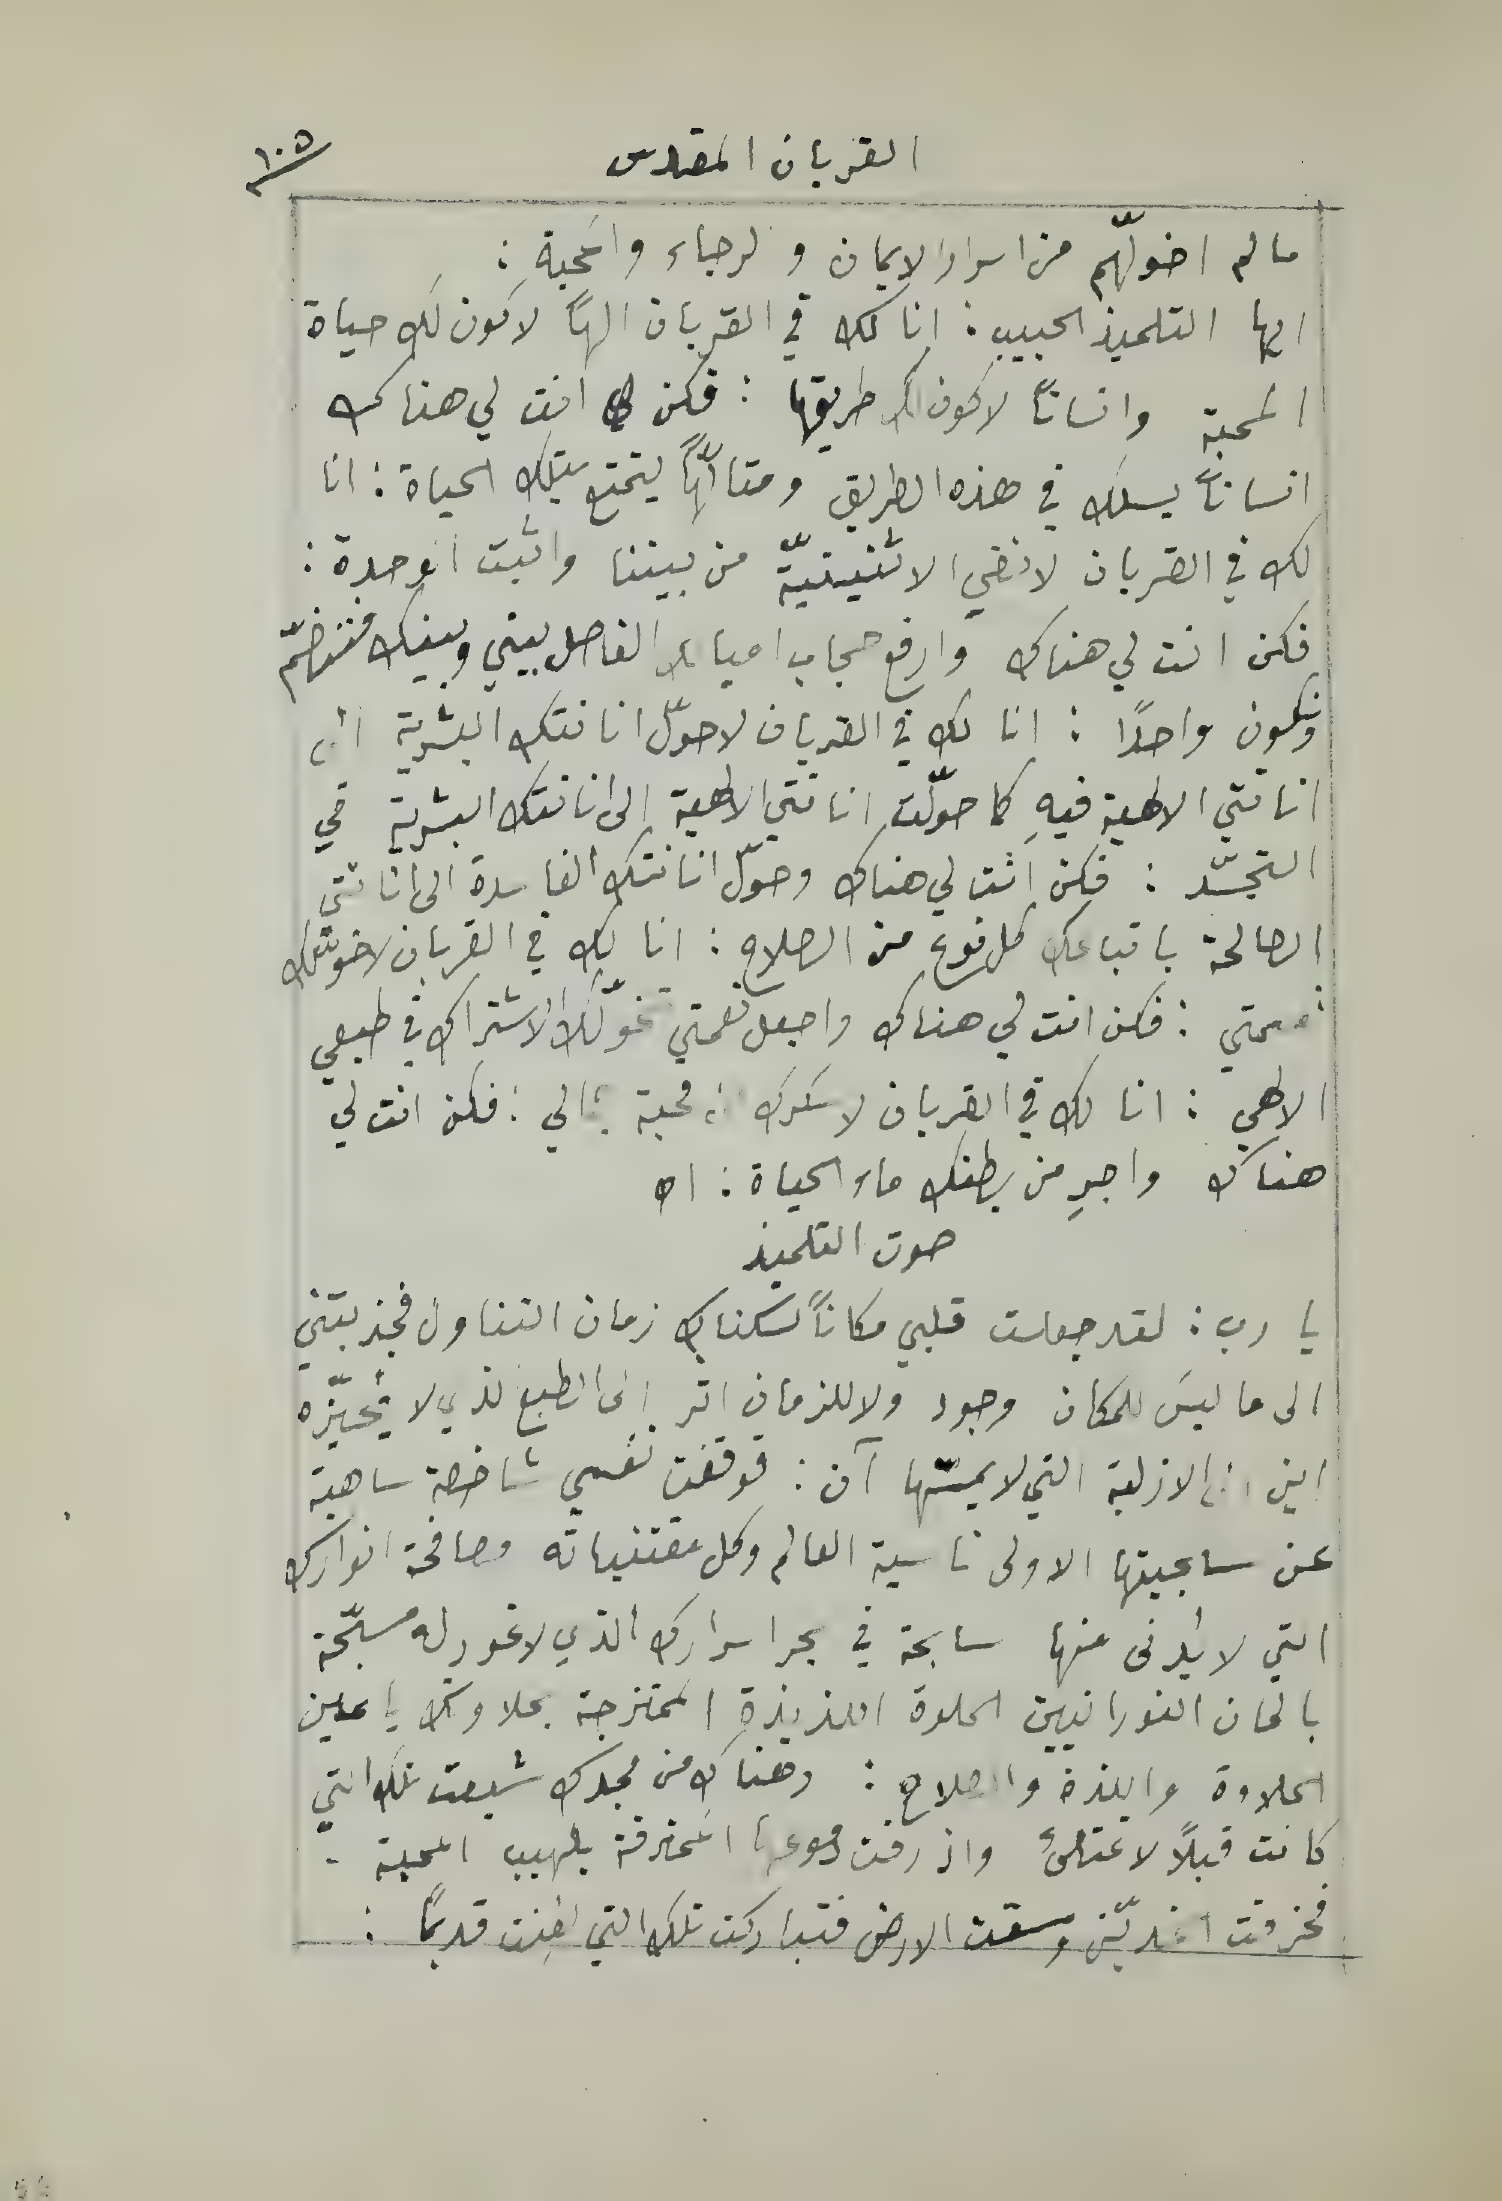 القربان المقدس
١٠٥
ما لم اخولّهم من اسرار الايمان والرجاء والمحبة :
ايها التلميذ الحبيب : انا لك في القربان الهًا لاكون لك حياة
المحبة وانسانًا لاكون لك طريقها : فكن انت لي هناك
انسانًا يسلك في هذه الطريق ومتألّهًا يتمتع بتلك الحياة : انا
لك في القربان لانفي الاثنينيّة من بيننا واثبت الوحدة :
فكن انت لي هناك وارفع حجاب اميالك الفاصل بيني وبينك فننضمّ
ونكون واحدًا : انا لك في القربان لاحوّل انانتك البشرية الى
انانتي الالهية فيهِ كما حوّلت انانتي الالهية الى انانتك البشرية في
التجسّد : فكن انت لي هناك وحوّل انانتك الفاسدة الى انانتي
الصالحة باتباعك كل نوع من الصلاح : انا لك في القربان لاخولك
نعمتي : فكن انت لي هناك واجعل نعمتي تخوّلك الاشتراك في طبعي
الالهي : انا لك في القربان لاسكرك من محبة جمالي : فكن انت لي
هناك واجرِ من بطنك ماء الحياة : اه
صوت التلميذ
يا رب : لقد جعلت قلبي مكانًا لسكناك زمان التناول فجذبتني
الى ما ليسَ للمكان وجود ولا للزمان اثر الى الطبع الذي لا يُحيّزه
اين الى الازلية التي لا يمسّها آن : فوقفت نفسي شاخصة ساهية
عن سجيتها الاولى ناسية العالم وكل مقتنياته مصافحة انوارك
التي لا يُدنى منها سابحة في بحر اسرارك الذي لا غور له مسبّحة
بالحان النورانيين الحلوة اللذيذة الممتزجة بحلاوتك يا معين
الحلاوة واللذة والصلاح : وهناك من مجدك شبعت تلك التي
كانت قبلًا لا تمتلئُ واذ رفت دموعها المحترقة بلهيب المحبة -
فخرقت الخديّن وسقت الارض فتباركت تلك التي لُعِنت قديمًا :